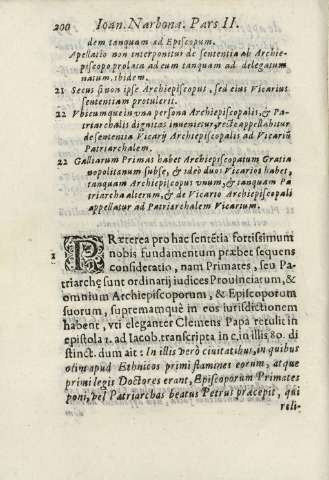 200 Ioan. Narbona. Pars II.
dem tanquam ad Episcopum.
Apellatio non interponitur de sententia ab Archie-
piscopo prolata ad eum tanquam ad delegatum
natum, ibidem.
21 Secus si non ipse Archiepiscopus, sed eius Vicarius
sententiam protulerit.
22 Vbicumque in vna persona Archiepiscopalis, & Pa-
triarchalis dignitas inuenietur, recte appellabitur
de sententia Vicarij Archiepiscopalis ad Vicariũ
Patriarchalem.
22 Galliarum Primas habet Archiepiscopatum Gratia
nopolitanum subse, & ideò duos Vicarios habet,
tanquam Archiepiscopus vnum, & tanquam Pa
triarcha alterum, & de Vicario Archiepiscopali
appellatur ad Patriarchalem Vicarium.
1 PRæterea pro hac sentẽtia fortissimum
nobis fundamentum præbet sequens
consideratio, nam Primates, seu Pa-
triarchę sunt ordinarij iudices Prouinciarum, &
omnium Archiepiscoporum, & Episcoporum
suorum, supremamquè in eos iurisdictionem
habent, vti eleganter Clemens Papa retulit in
epistola 1. ad Iacob. transcripta in c. in illis 80. di
stinct. dum ait: In illis verò ciuitatibus, in quibus
olim apud Ethnicos primi flamines eorum, atque
primi legis Doctores erant, Episcoporum Primates
poni, vel Patriarchas beatus Petrus præcepit, qui
reli-